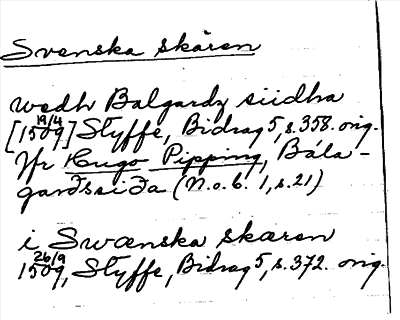 Svenska skären
wedh Balgardz siidha
[19/4 1509] Styffe, Bidrag 5, s. 358. orig.
Jfr Hugo Pipping, Bála-
garðssíða (N.o.b. 1, s. 21)
i Swænska skæren
26/9 1509, Styffe, Bidrag 5, s. 372. orig.